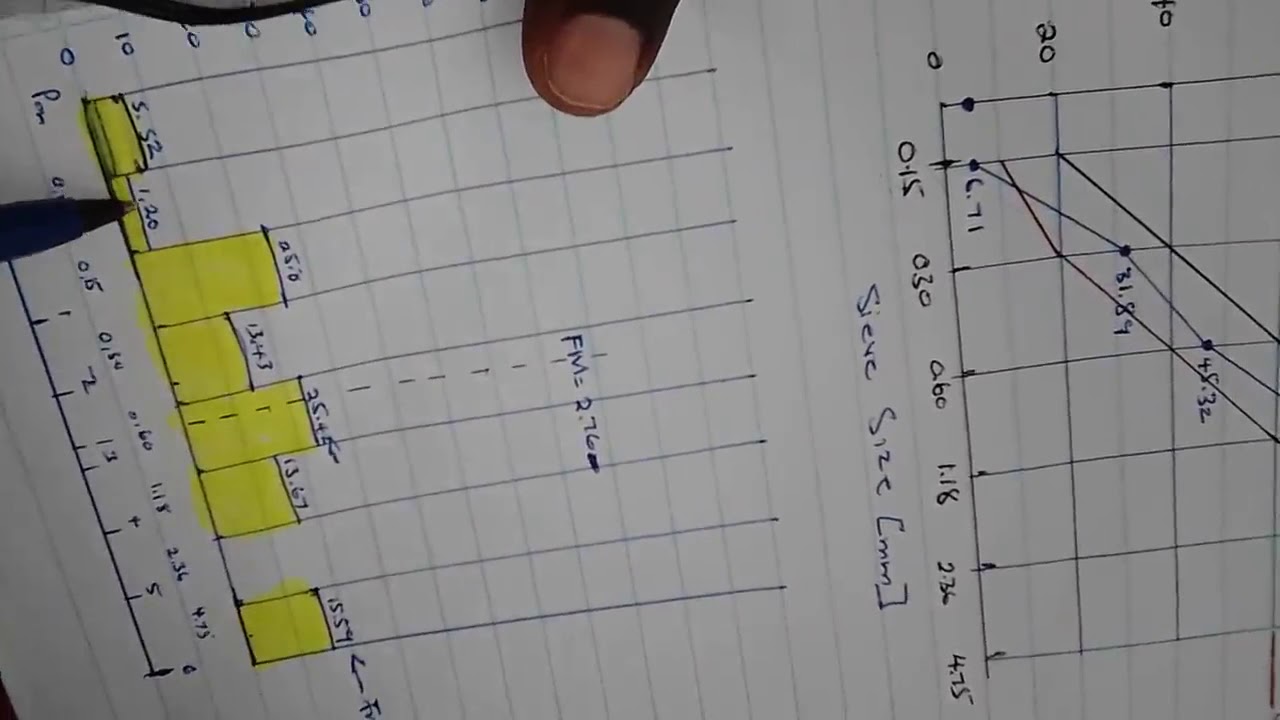 0
10
Pan
5.52
1.20
13.43
25.45
13.67
15.59
FM = 2.76
0.15
0.60
1.18
2.36
4.75
1
2
3
4
5
6
0
20
40
6.71
31.89
45.32
0.15
0.30
0.60
1.18
2.36
4.75
Sieve Size [mm]